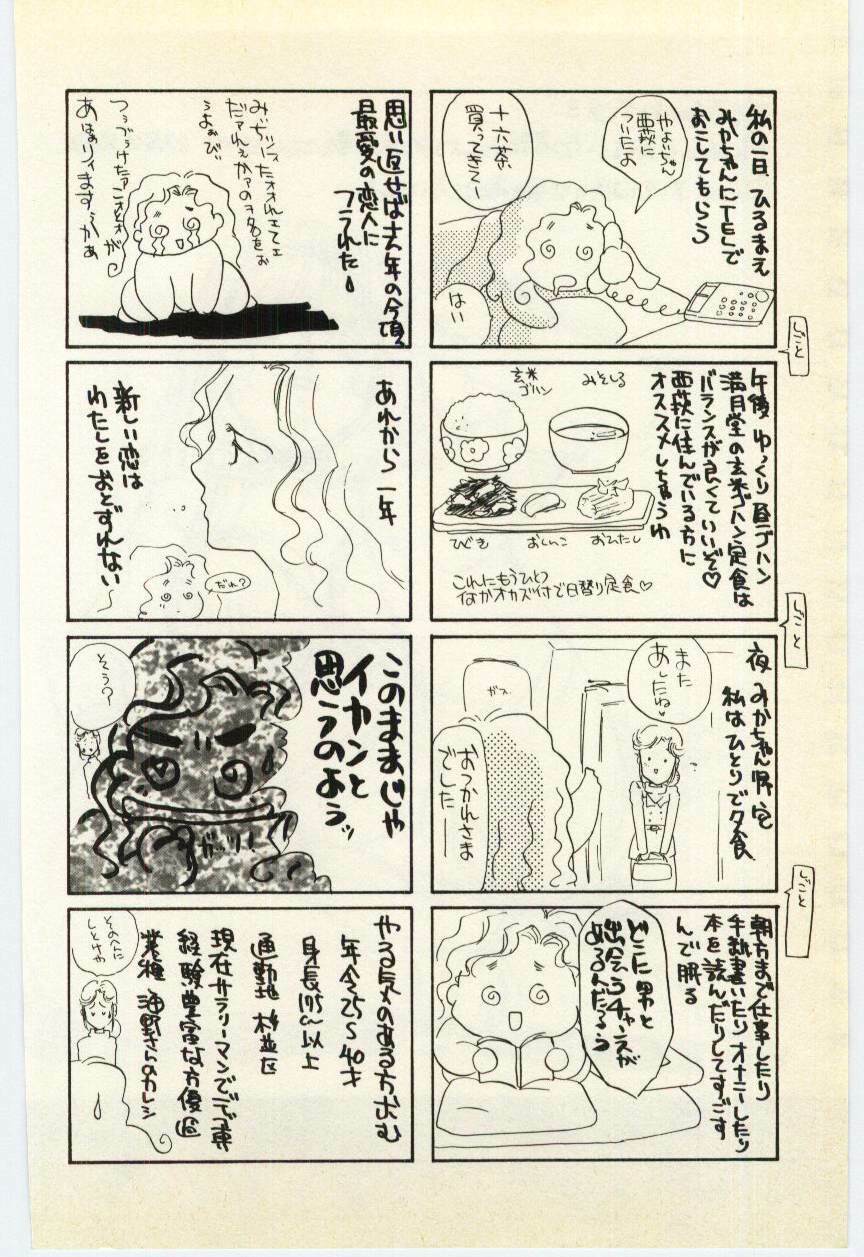 私の一日 ひるまえ
みかちゃんにTELで
おこしてもらう
やよいちゃん
西荻に
ついたよ
十六茶
買ってきてー
はい
しごと
午後 ゆっくり昼ゴハン
満月堂の玄米ゴハン定食は
バランスが良くていいぞ♡
西荻に住んでいる方に
オススメしちゃうわ
みそしる
玄米
ゴハン
ひじき
おしんこ
おひたし
これにもうひとつ
なんかオカズ付で日替り定食♡
しごと
夜 みかちゃん帰宅
私はひとりで夕食
また
あしたね
ガス
おつかれさま
でしたー
しごと
朝方まで仕事したり
手紙書いたりオナニーしたり
本を読んだりしてすごす
んで眠る
どこに男と
出会うチャンスが
あるんだろう
思い返せば去年の今頃、
最愛の恋人に
フラれた
あれから一年
新しい恋は
わたしをおとずれない
だれ?
このままじゃ
イカンと
思うのよう
そう?
やる気のある方求む
年令25〜40才
身長175cm以上
通勤地 杉並区
現在サラリーマンで
経験豊富な方優遇
業種
さんのカレシ
そのへんに
しとけや